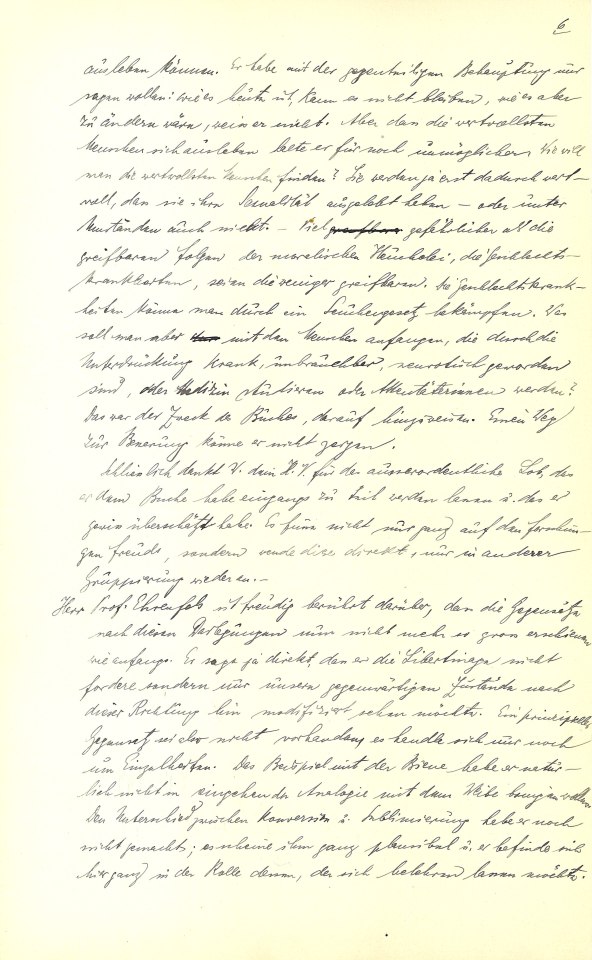 6
ausleben können. Er habe mit der gegenteiligen Behauptung nur
sagen wollen: wie es heute ist, kann es nicht bleiben, wie es aber
zu ändern wäre, weiss er nicht. Aber dass die wertvollsten
Menschen sich ausleben halte er für noch unmöglicher. Wie will
man die wertvollsten Menschen finden? Sie werden ja erst dadurch wert-
voll, dass sie ihre Sexualität ausgelebt haben – oder unter
Umständen auch nicht. – Viel gefährlicher als die
greifbaren Folgen der moralischen Heuchelei, die Geschlechts-
krankheiten, seien die weniger greifbaren. Die Geschlechtskrank-
heiten könne man durch ein Seuchengesetz bekämpfen. Was
soll man aber mit den Menschen anfangen, die durch die
Unterdrückung krank, unbrauchbar, neurotisch geworden
sind, oder Medizin studieren oder Attentäterinnen werden?
Das war der Zweck des Buches, darauf hinzuweisen. Einen Weg
zur Besserung könne er nicht zeigen.
Schliesslich dankt V. dem H. V. für das ausserordentliche Lob, das
er dem Buche habe eingangs zu teil werden lassen u. das er
gewiss überschätzt habe. Es fusse nicht nur ganz auf den Forschun-
gen Freuds, sondern wende diese direkt, nur in anderer
Gruppierung wieder an. –
Herr Prof. Ehrenfels ist freudig berührt darüber, dass die Gegensätze
nach diesen Darlegungen nun nicht mehr so gross erschienen
wie anfangs. Er sage ja direkt, dass er die Libertinage nicht
fordere sondern nur unsern gegenwärtigen Zustände nach
dieser Richtung hin modifiziert sehen möchte. Ein prinzipieller
Gegensatz sei also nicht vorhanden, es handle sich nur noch
um Einzelheiten. Das Beispiel mit der Biene habe er natür-
lich nicht in eingehender Analogie mit dem Weibe bringen wollen.
Den Unterschied zwischen Konversion u. Sublimierung habe er noch
nicht gemacht; es scheine ihm ganz plausibel u. er befinde sich
hier ganz in der Rolle dessen, der sich belehren lassen möchte.